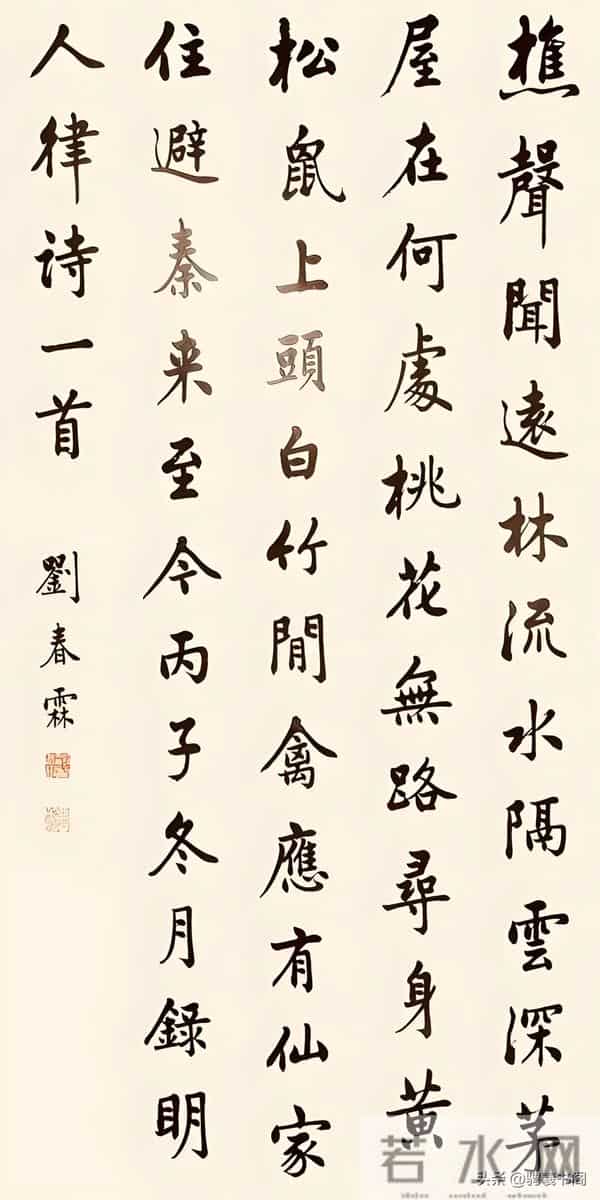 樵聲聞遠林流水隔雲深茅
屋在何處桃花無路尋身黃
松鼠上頭白竹閒禽應有仙家
住避秦来至今丙子冬月錄明
人律詩一首
劉春霖
若水网
头条 @
书阁